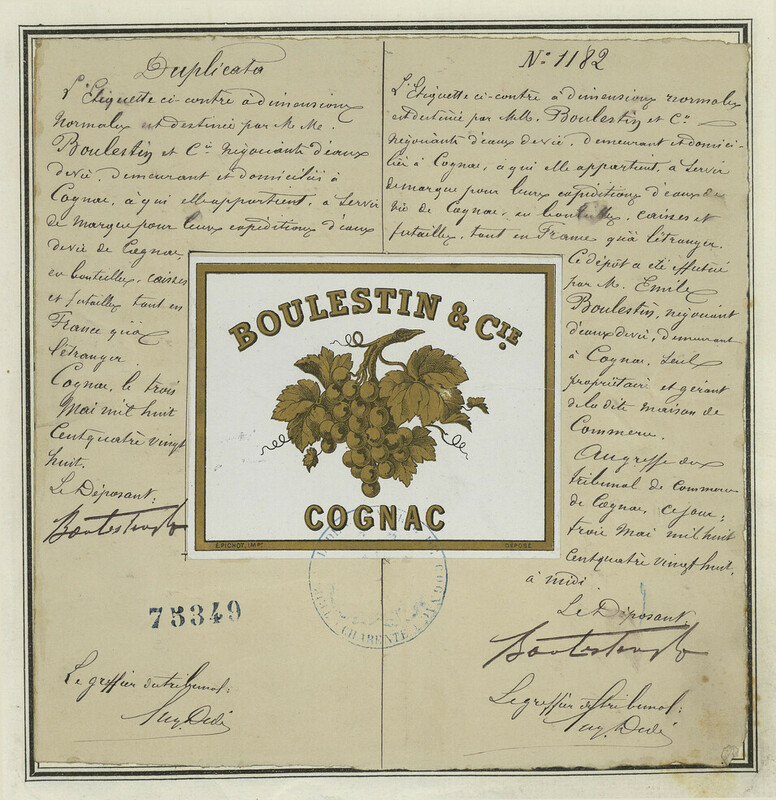 Duplicata
L'Etiquette ci-contre à dimensions
normales est destinée par M Me.
Boulestin et Cie Négociants d'eaux
de vie, demeurant et domiciliés à
Cognac, à qui elle appartient, à servir
de Marque pour leurs expéditions d'eaux
de vie de Cognac,
en bouteilles, caisses
et futailles tant en
France qu'à
l'étranger
Cognac, le trois
Mai mil huit
Cent quatre vingt
huit.
Le Déposant:
75349
Le greffier du tribunal:
Aug. Didé
No 1182
L'Etiquette ci-contre à dimensions normales
est destinée par MM. Boulestin et Co
Négociants d'eaux de vie, demeurant et domici-
liés à Cognac, à qui elle appartient, à servir
de marque pour leurs expéditions d'eaux de
vie de Cognac, en bouteilles, caisses et
futailles, tant en France qu'à l'étranger.
Ce dépôt a été effectué
par M. Emile
Boulestin, négociant
d'eaux de vie, demeurant
à Cognac, seul
propriétaire et gérant
de la dite maison de
Commerce.
Au greffe du
tribunal de Commerce
de Cognac, ce jour,
trois Mai mil huit
Cent quatre vingt huit,
à midi
Le Déposant
Le greffier du tribunal:
Aug. Didé
BOULESTIN & CIE.
COGNAC
E. PICHOT, IMPR.
DÉPOSÉ
COGNAC
CHARENTE